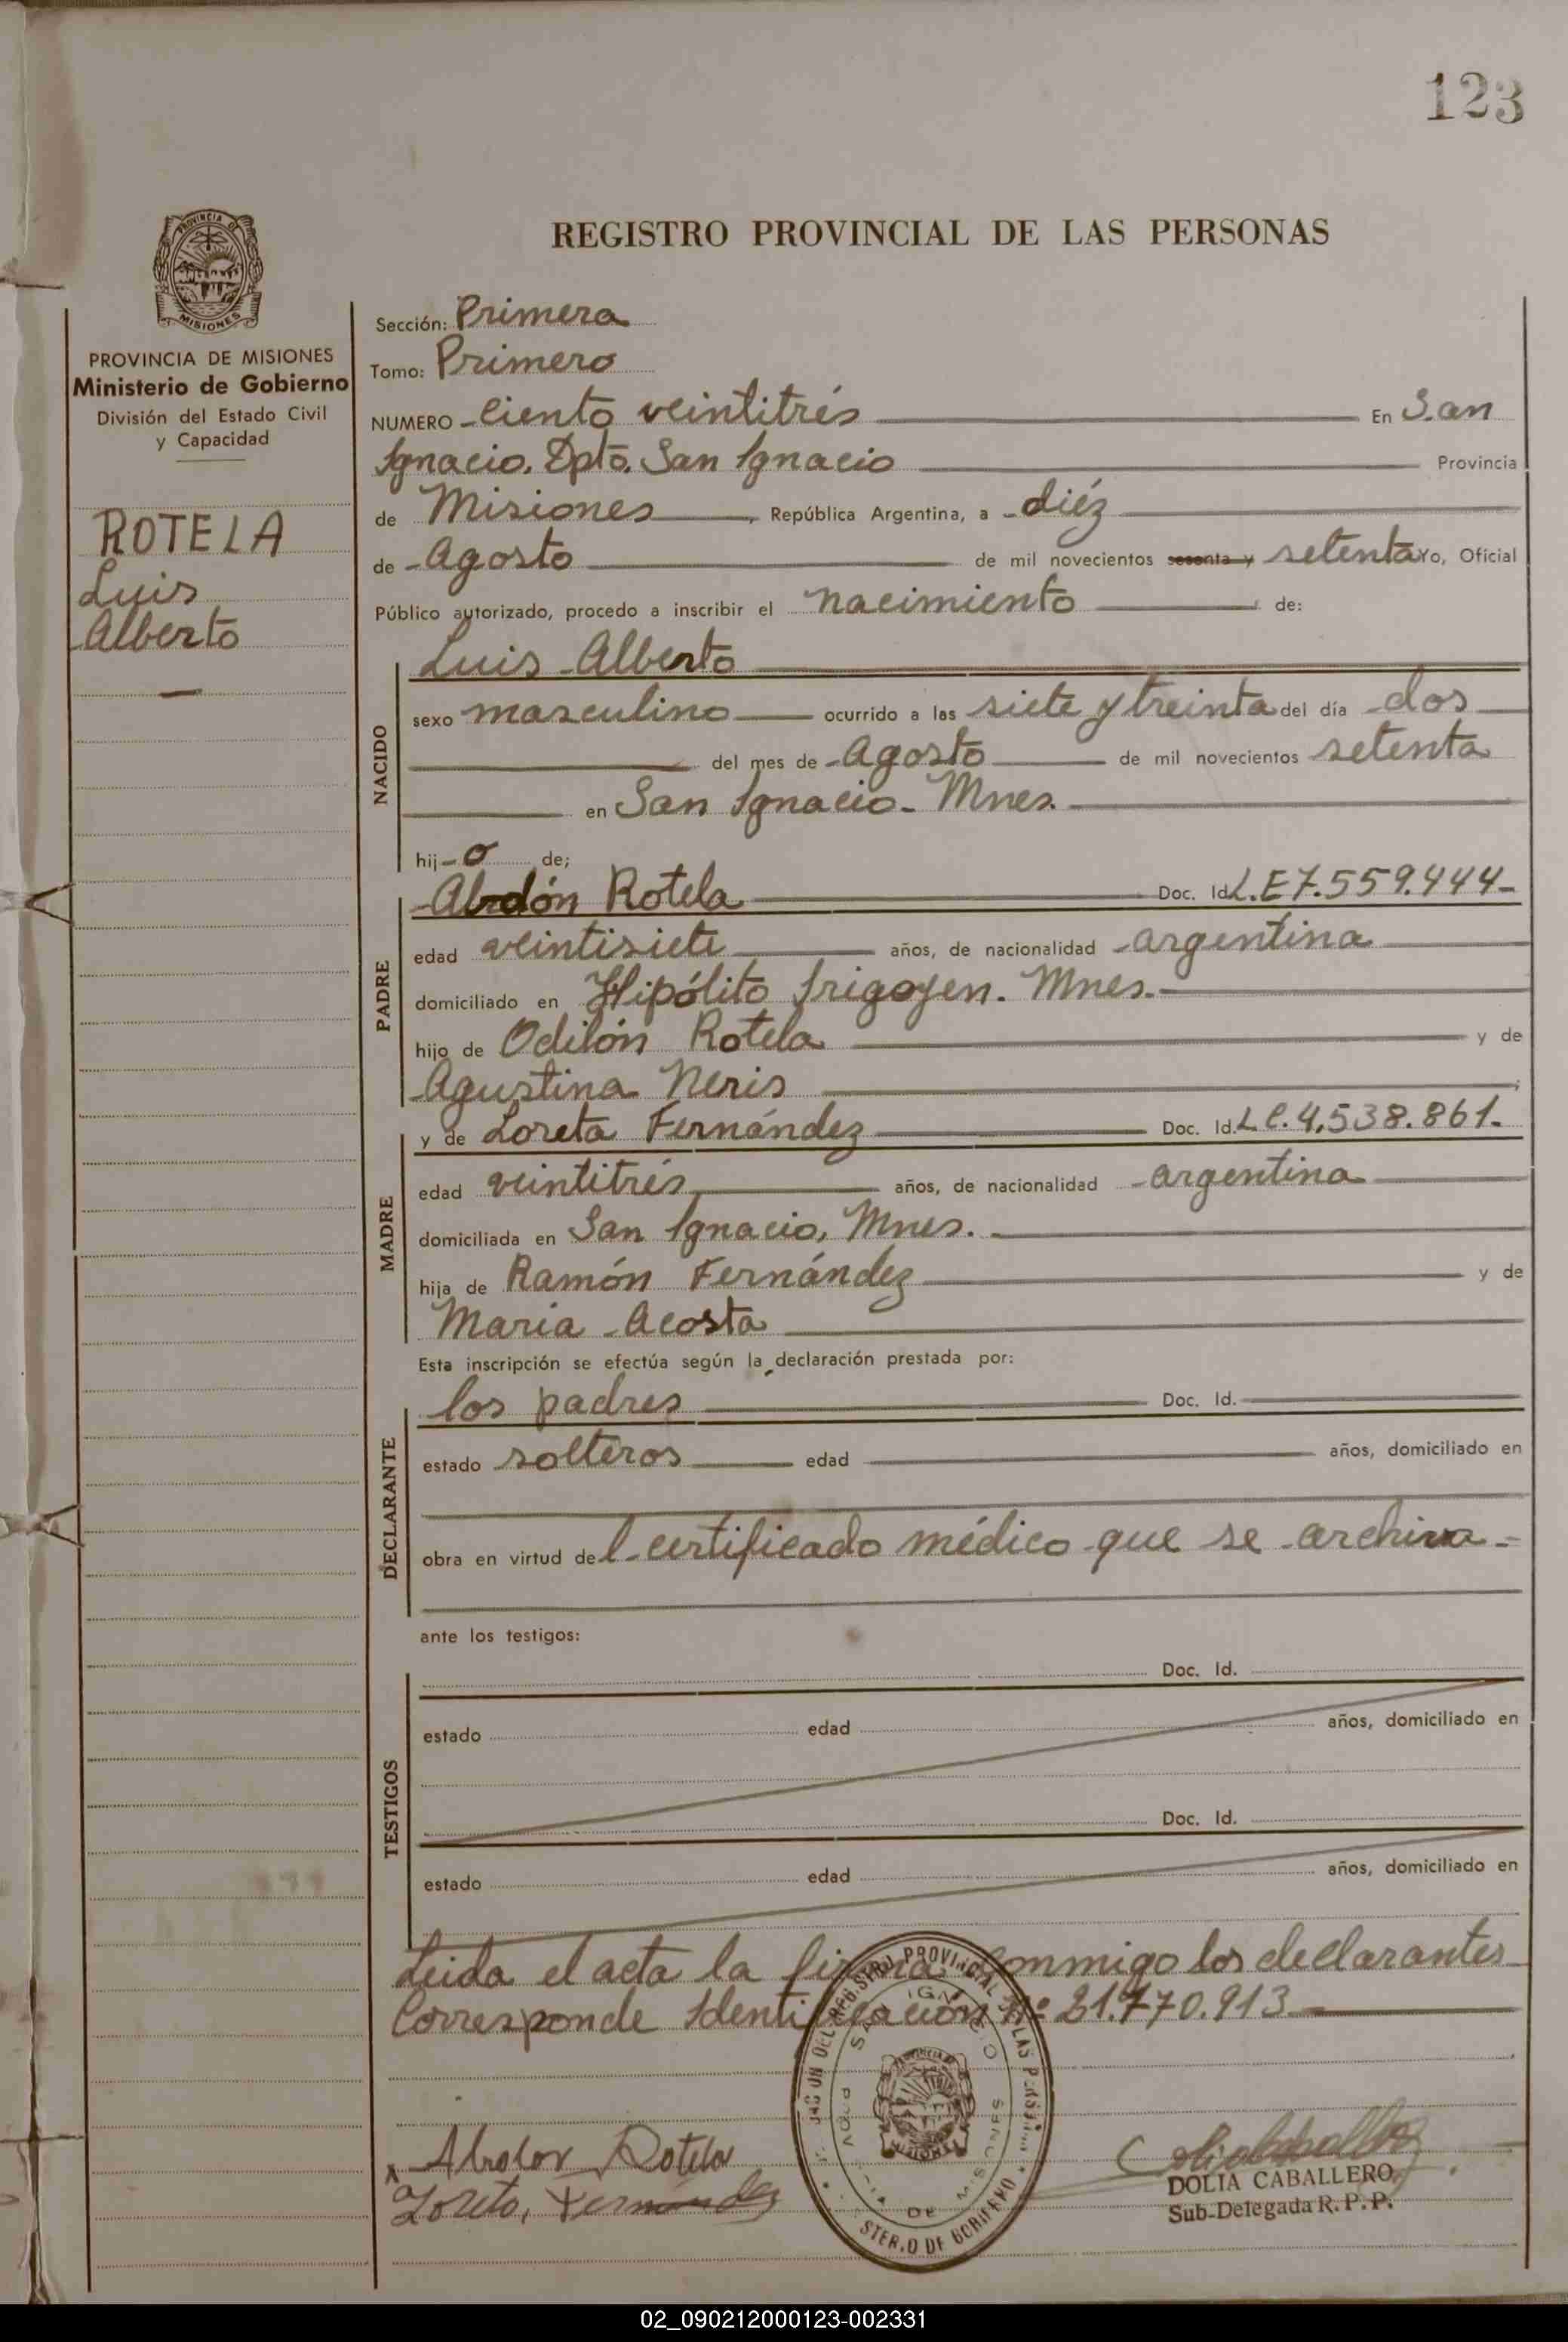 123
REGISTRO PROVINCIAL DE LAS PERSONAS
PROVINCIA DE
MISIONES
PROVINCIA DE MISIONES
Ministerio de Gobierno
División del Estado Civil
y Capacidad
ROTELA
Luis
Alberto
Sección: Primera
Tomo: Primero
NUMERO Ciento veintitrés En San
Ignacio. Dpto. San Ignacio Provincia
de Misiones, República Argentina, a diéz
de Agosto de mil novecientos sesenta y setenta Yo, Oficial
Público autorizado, procedo a inscribir el nacimiento de:
NACIDO
Luis Alberto
sexo masculino ocurrido a las siete y treinta del día dos
del mes de Agosto de mil novecientos setenta
en San Ignacio - Mnes.
hij-o de;
PADRE
Abdón Rotela Doc. Id. L.E 7.559.444-
edad veintisiete años, de nacionalidad argentina
domiciliado en Hipólito Irigoyen. Mnes.
hijo de Odilón Rotela y de
Agustina Neris ;
MADRE
y de Loreta Fernández Doc. Id. L.C. 4.538.861.
edad veintitrés años, de nacionalidad argentina
domiciliada en San Ignacio, Mnes.
hija de Ramón Fernández y de
Maria Acosta
Esta inscripción se efectúa según la declaración prestada por:
DECLARANTE
los padres Doc. Id.
estado solteros edad años, domiciliado en
obra en virtud del certificado médico que se archiva -
ante los testigos:
TESTIGOS
Doc. Id.
estado edad años, domiciliado en
Doc. Id.
estado edad años, domiciliado en
Leida el acta la firma conmigo los declarantes
Corresponde Identificación Nº 21.770.913
Abdon Rotela
Loreta, Fernandez
DOLIA CABALLERO
Sub-Delegada R. P. P.
02_090212000123-002331